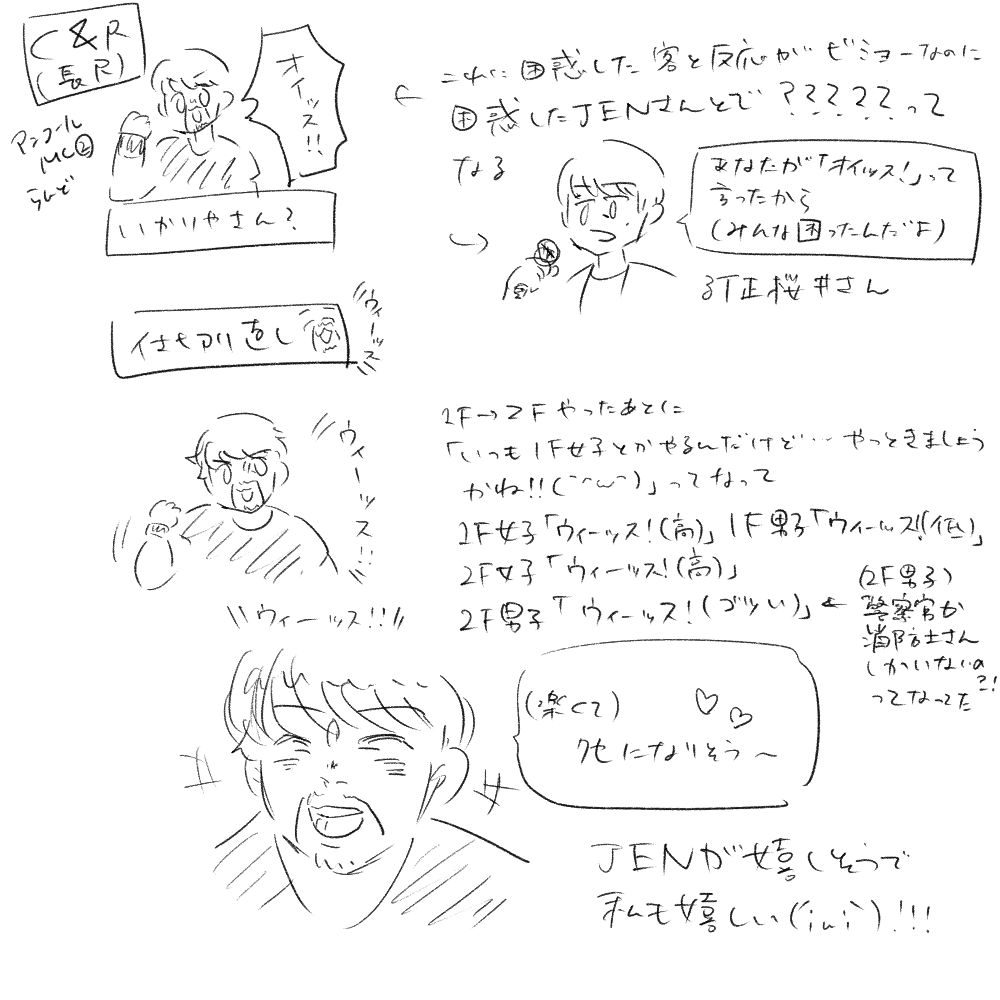 C&R
(長尺)
アンコール
MC②
らへんで
オイッス!!
いかりやさん?
これに困惑した客と反応がビミョーなのに
困惑したJENさんとで?????って
なる
あなたが「オイッス!」って
言ったから
(みんな困ったんだよ)
訂正桜井さん
仕切り直し
ウィーッス
ウィーッス!!
ウィーッス!!
2F→2Fやったあとに
「いつも1F女子とかやるんだけど…やっときましょう
かね!!(ˉ˘ω˘)」ってなって
2F女子「ウィーッス!(高)」1F男子「ウィーッス!(低)」
2F女子「ウィーッス!(高)」
2F男子「ウィーッス!(ゴツい)」←
(2F男子)
警察官か
消防士さん
しかいないの
?!
ってなった
(楽しくて)
クセになりそう〜
JENが嬉しそうで
私も嬉しい(;ω;)!!!